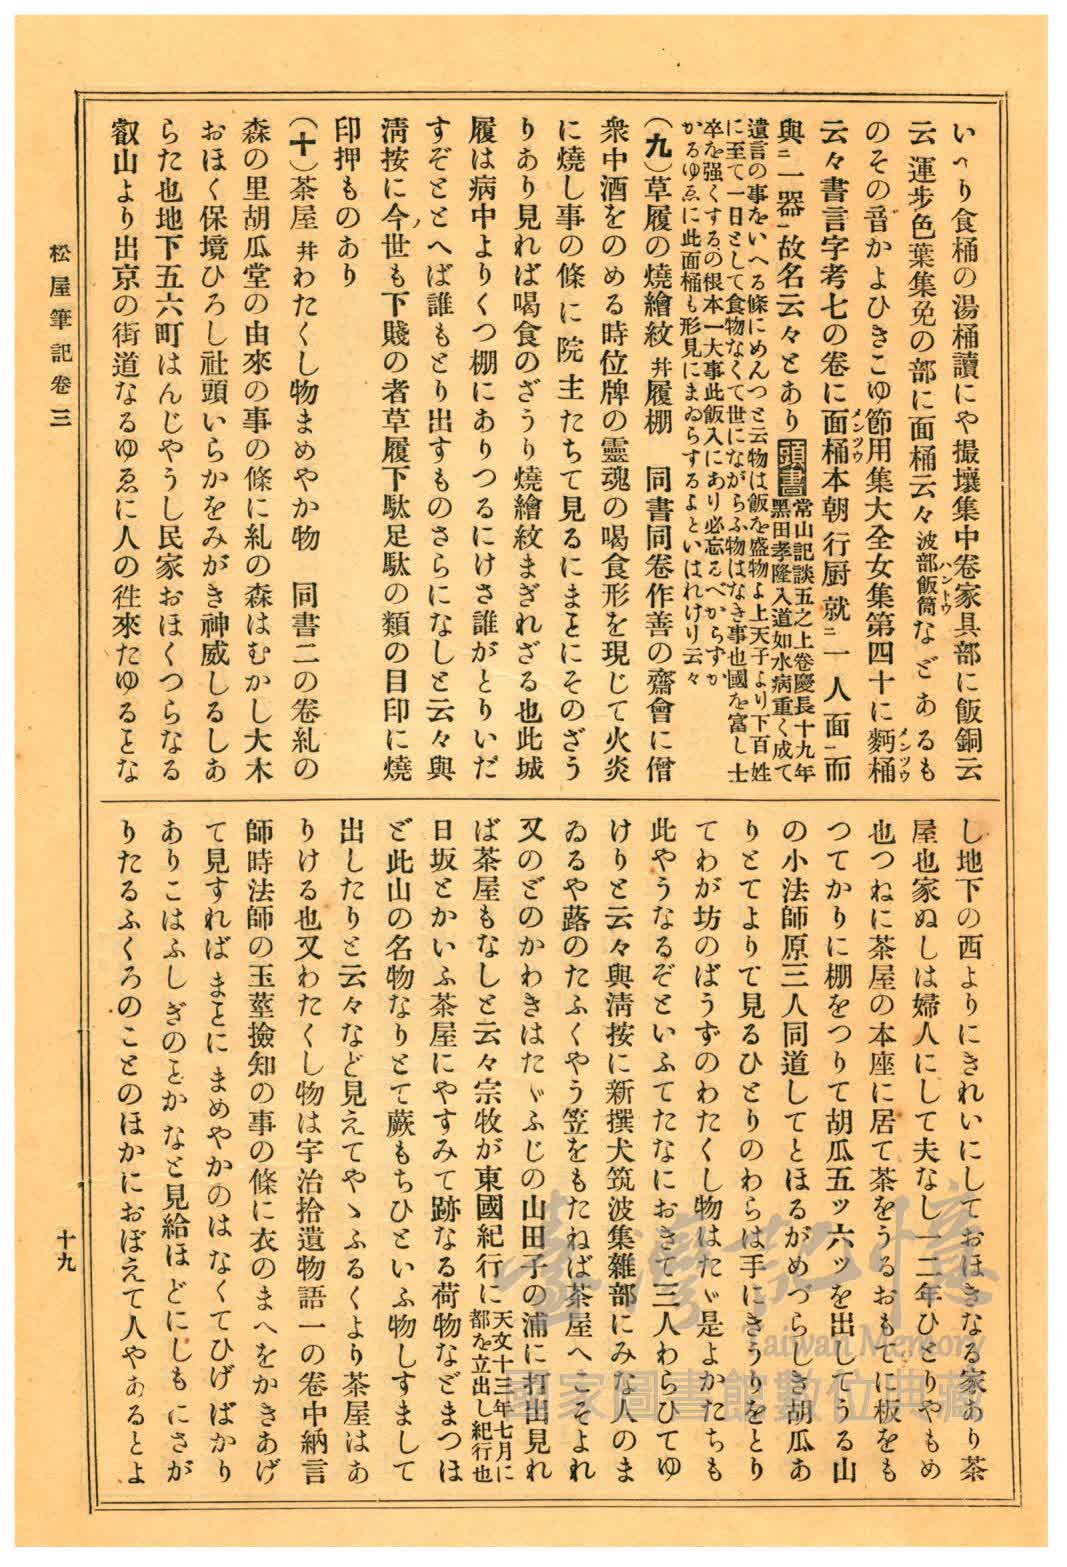 いへり食桶の湯桶讀にや撮壤集中卷家具部に飯銅云
云運步色葉集免の部に面桶云々波部飯筒ハントウなどあるも
のその音かよひきこゆ節用集大全女集第四十に麪桶メンツウ
云々書言字考七の卷に面桶メンツウ本朝行厨就ニ一人面一而
與ニ一器一故名云々とあり頭書常山記談五之上卷慶長十九年
黑田孝隆入道如水病重く成て
遺言の事をいへる條にめんつと云物は飯を盛物よ上天子より下百姓
に至て一日として食物なくて世にながらふ物はなき事也國を富し士
卒を强くするの根本一大事此飯入にあり必忘るべからずか
かるゆゑに此面桶も形見にまゐらするよといはれけり云々
(九)草履の燒繪紋幷履棚　同書同卷作善の齋會に僧
衆中酒をのめる時位牌の靈魂の喝食形を現じて火炎
に燒し事の條に院主たちて見るにまことにそのざう
りあり見れば喝食のざうり燒繪紋まぎれざる也此城
履は病中よりくつ棚にありつるにけさ誰がとりいだ
すぞととへば誰もとり出すものさらになしと云々與
淸按に今ノ世も下賤の者草履下駄足駄の類の目印に燒
印押ものあり
(十)茶屋幷わたくし物まめやか物　同書二の卷糺の
森の里胡瓜堂の由來の事の條に糺の森はむかし大木
おほく保境ひろし社頭いらかをみがき神威しるしあ
らた也地下五六町はんじやうし民家おほくつらなる
叡山より出京の街道なるゆゑに人の徃來たゆることな
し地下の西よりにきれいにしておほきなる家あり茶
屋也家ぬしは婦人にして夫なし一二年ひとりやもめ
也つねに茶屋の本座に居て茶をうるおもてに板をも
つてかりに棚をつりて胡瓜五ッ六ッを出してうる山
の小法師原三人同道してとほるがめづらしき胡瓜あ
りとてよりて見るひとりのわらは手にきうりをとり
てわが坊のばうずのわたくし物はたゞ是よかたちも
此やうなるぞといふてたなにおきて三人わらひてゆ
けりと云々與淸按に新撰犬筑波集雜部にみな人のま
ゐるや蕗のたふくやう笠をもたねば茶屋へこそよれ
又のどのかわきはたゞふじの山田子の浦に打出見れ
ば茶屋もなしと云々宗牧が東國紀行に天文十三年七月に
都を立出し紀行也
日坂とかいふ茶屋にやすみて跡なる荷物などまつほ
ど此山の名物なりとて蕨もちひといふ物しすまして
出したりと云々など見えてやゝふるくより茶屋はあ
りける也又わたくし物は宇治拾遺物語一の卷中納言
師時法師の玉莖撿知の事の條に衣のまへをかきあげ
て見すればまことにまめやかのはなくてひげばかり
ありこはふしぎのことかなと見給ほどにしもにさが
りたるふくろのことのほかにおぼえて人やあるとよ
松屋筆記卷三
十九
臺灣記憶
Taiwan Memory
國家圖書館數位典藏